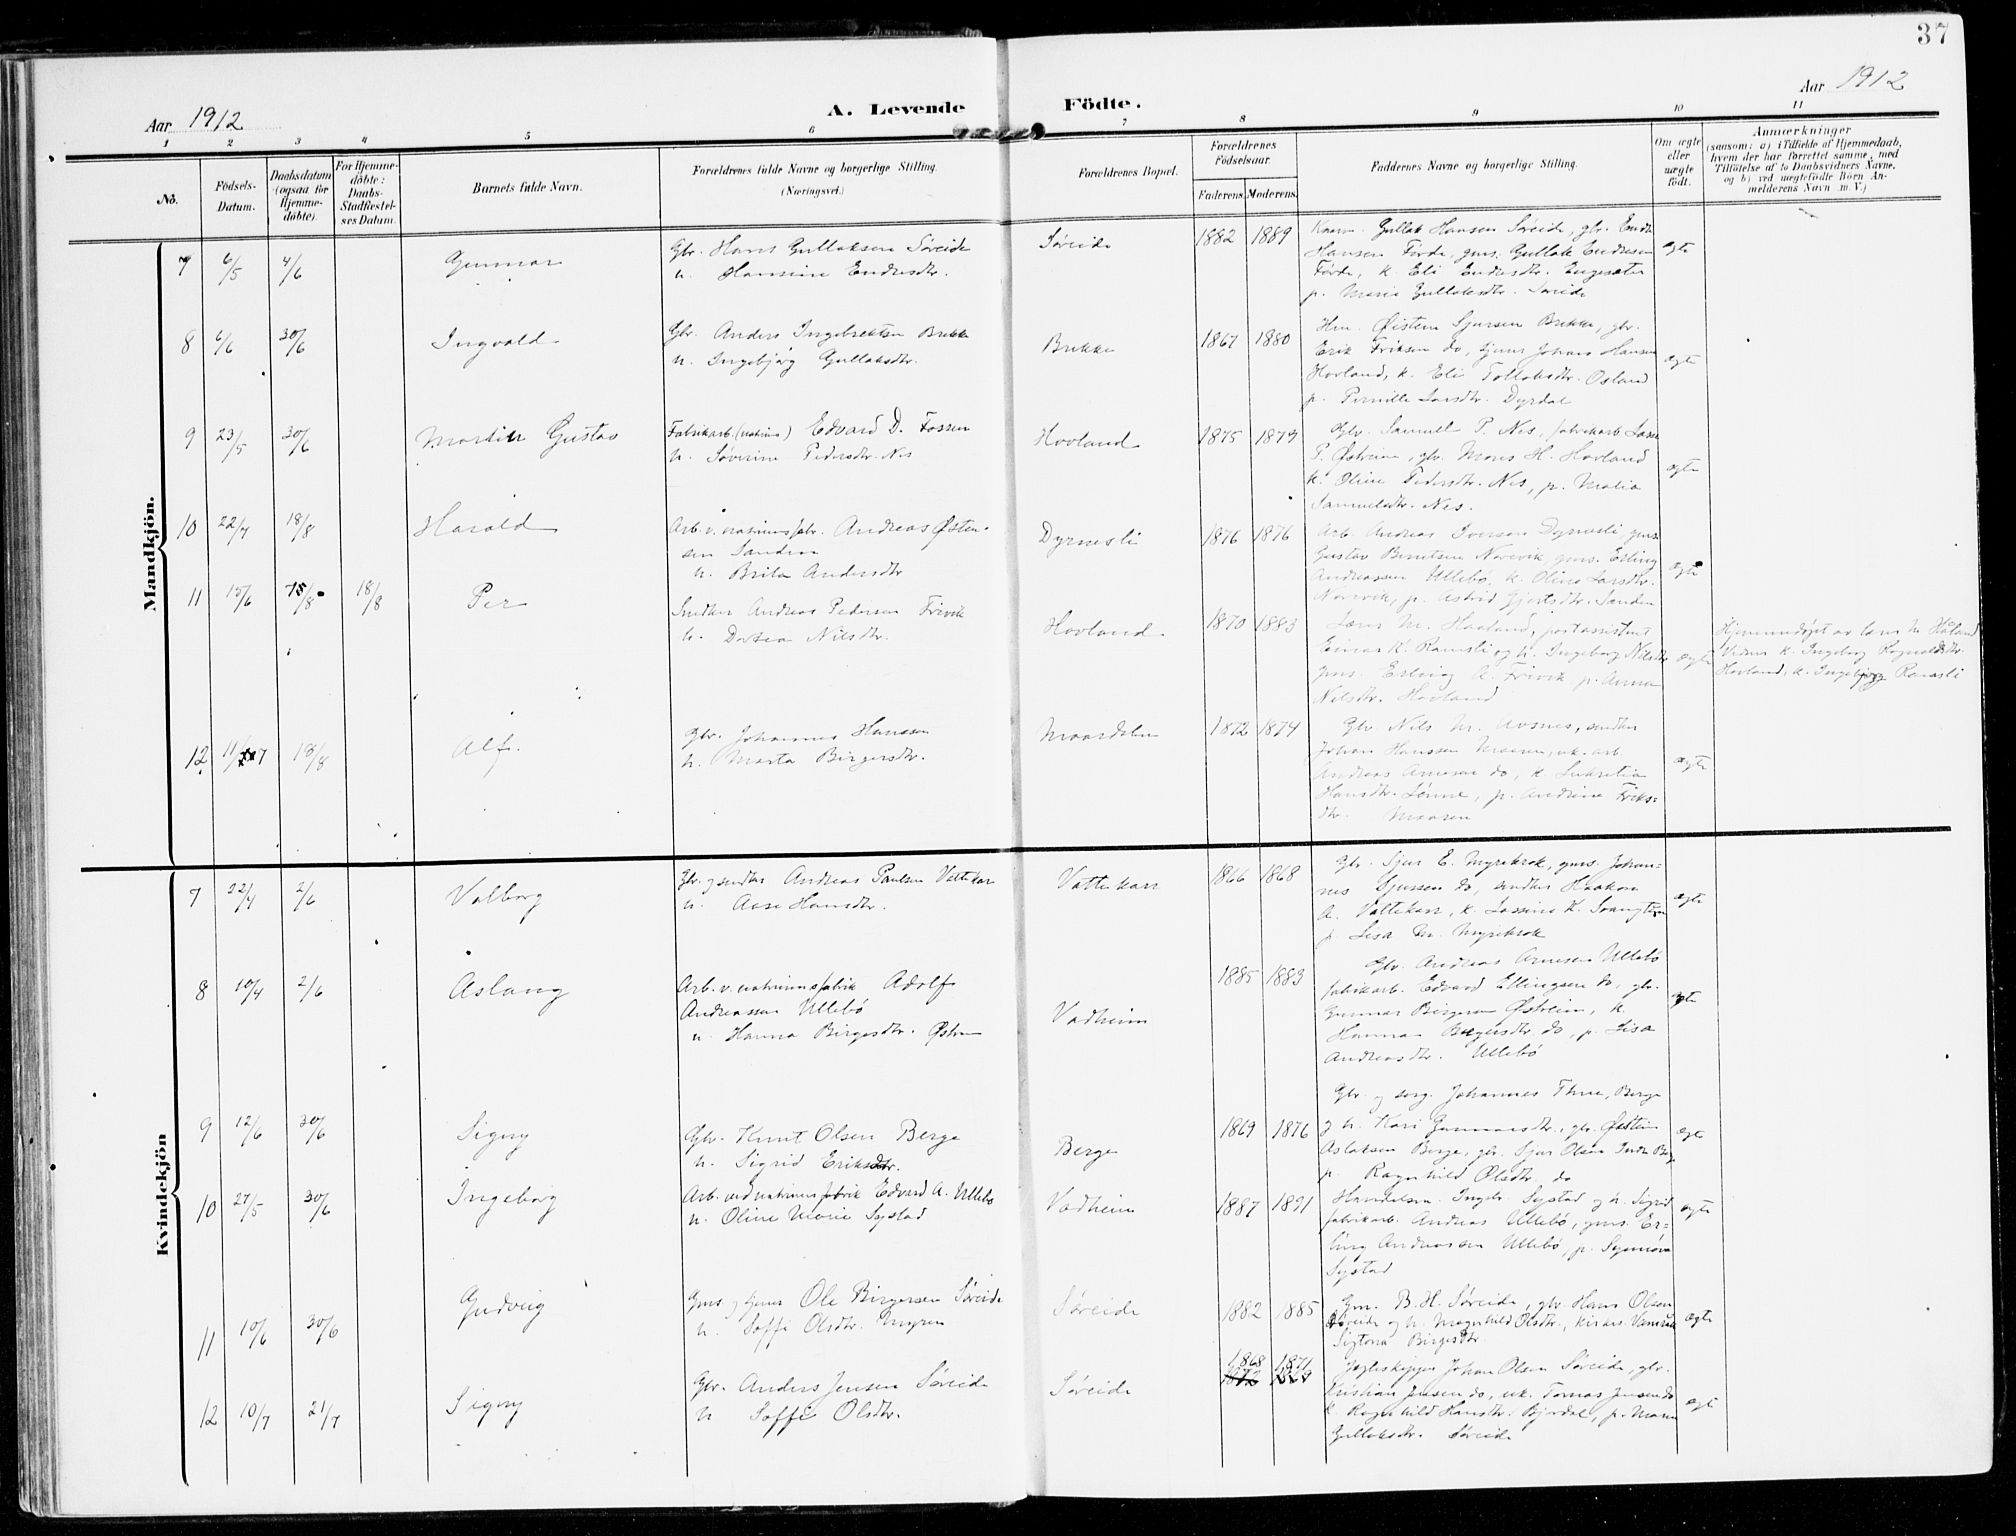 37
Aar 1912
A. Levende
Födte.
Aar 1912
1 2 3 4 5 6 7 8 9 10 11
No.
Födsels-Datum.
Daabsdatum (ogsaa for Hjemmedöbte).
For Hjemmedöbte: Daabs-Stadfæstelses Datum.
Barnets fulde Navn.
Forældrenes fulde Navne og borgerlige Stilling.
(Næringsvei.)
Forældrenes Bopæl.
Forældrenes Födselsaar.
Faderens. Moderens.
Faddernes Navne og borgerlige Stilling.
Om ægte eller uægte födt.
Anmærkninger
(saasom: a) i Tilfælde af Hjemmedaab,
hvem der har forrettet samme, med
Tilföielse af to Daabsvidners Navne.
og b) ved uægtefödte Börn An-
melderens Navn m. V.)
Mandkjön.
7 6/5 4/6 Gunnar
Gbr. Hans Gullaksen Søreide
u. Hansine Endresdtr.
Søreide 1882 1889
Gullak Hansen Søreide, gbr. Endre
Hansen Førde, gms. Gullak Endresen
Førde, k. Eli Endresdtr. Engesæter
p. Maria Gullaksdtr. Søreide
ægte
8 6/6 30/6 Ingvald
Gbr. Anders Ingebrektsen Brekke
u. Ingebjørg Gullaksdtr.
Brekke 1867 1880
Hm. Øistein Sjursen Brekke, gbr.
Erik Eriksen do, tjener Johans Hansen
Hovland, k. Eli Tollaksdtr. Osland
p. Pernille Larsdtr. Dyrdal
ægte
9 23/5 30/6 Martin Gustav
Fabrikarb. (natrium) Edvard D. Fossen
u. Søverine Pedersdtr. Nes
Hovland 1875 1879
Gbr. Samuel P. Nes, fabrikarb Lasse
P. Østreim, gbr. Mons H. Hovland
k. Oline Pedersdtr. Nes, p. Malia
Samuelsdtr. Nes.
ægte
10 22/7 18/8 Harald
Arb. v. natriumfabr. Andreas Østen-
sen Sanden
u. Brita Andersdtr
Dyrnesli 1876 1876
Arb. Andreas Iversen Dyrnesli, gms.
Gustav Berntsen Norevik, gms. Erling
Andreassen Ullebø, k. Oline Larsdtr.
Norevik, p. Astrid Gjertsdtr. Sanden
ægte
11 15/6 15/8 18/8 Per
Snedker Andreas Pedersen Frivik
u. Dortea Nilsdtr.
Hovland 1870 1883
Lærer M. Haaland, postassistent
Einar K. Ramsli og h. Ingeborg Nilsdtr
gms. Erling A. Frivik, p. Anna
Nilsdtr. Hovland
ægte
Hjemmedøpt av lærer M. Håland
Vidner k. Ingeborg Ragnaldsdtr.
Hovland, k. Ingebjørg Ramsli
12 11/7 18/8 Alf.
Gbr. Johannes Hanssen
u. Marta Birgersdtr.
Maardalen 1872 1874
Gbr Nils M. Avsnes, snedker
Johan Hanssen Maaren, uk. arb.
Andreas Arnesen do, k. Lukretia
Hansdtr. Lønne, p. Andrine Eriks-
dtr. Maaren
ægte
Kvindekjön
7 22/4 2/6 Valborg
Gbr. og snedker Andreas Paulsen Vattekar
u. Aase Hansdtr.
Vattekarr 1866 1868
Gbr. Sjur E. Myrekrok, gms. Johan-
nes Sjursen do, snedker Haakon
A. Vattekarr, k. Lassine K.
p. Lisa M. Myrekrok
ægte
8 10/4 2/6 Aslaug
Arb. v. natriumsfabrik Adolf
Andreassen Ullebø
u. Hanna Birgersdtr.
Vadheim 1885 1883
Gbr. Andreas Arnesen Ullebø
fabrikarb. Edvard Ellingsen do, gbr.
Gunnar Birgersen Østreim, k.
Hanna Birgersdtr do, p. Lisa
Andreasdtr. Ullebø
ægte
9 12/6 30/6 Signy
Gbr. Knut Olsen Berge
u. Sigrid Eriksdtr.
Berge 1869 1876
Gbr og sogn. Johannes Berge
og h. Kari Gunnarsdtr., gbr. Øistein
Aslaksen Berge, gbr. Sjur Olsen Indre Berge
p. Ragnhild Olsdtr do
ægte
10 27/5 30/6 Ingeborg
Arb. ved natriumsfabrik Edvard A. Ullebø
u. Oline Marie Systad
Vadheim 1887 1891
Handelsm. Ingebr. Systad og h. Sigrid
fabrikarb. Andreas Ullebø, gms. Er-
ling Andreassen Ullebø, p. Synnøva
Systad
ægte
11 10/6 30/6 Gudveig
Gms og tjener Ole Birgersen Søreide
u. Soffi Olsdtr. Myren
Søreide 1882 1885
Gm. B. H. Søreide, gbr. Hans Olsen
Søreide og h. Magnhild Olsdtr.,
Birgersdtr.
ægte
12 10/7 21/7 Signy
Gbr. Anders Jensen Søreide
u Soffi Olsdtr.
Søreide 1868 1871
Jægtskipper Johan Olsen Søreide, gbr.
Kristian Jensen do, uk. Tomas Jensen do
k. Ragnhild Hansdtr. Bjordal, p. Maria
Gullaksdtr. Søreide
ægt